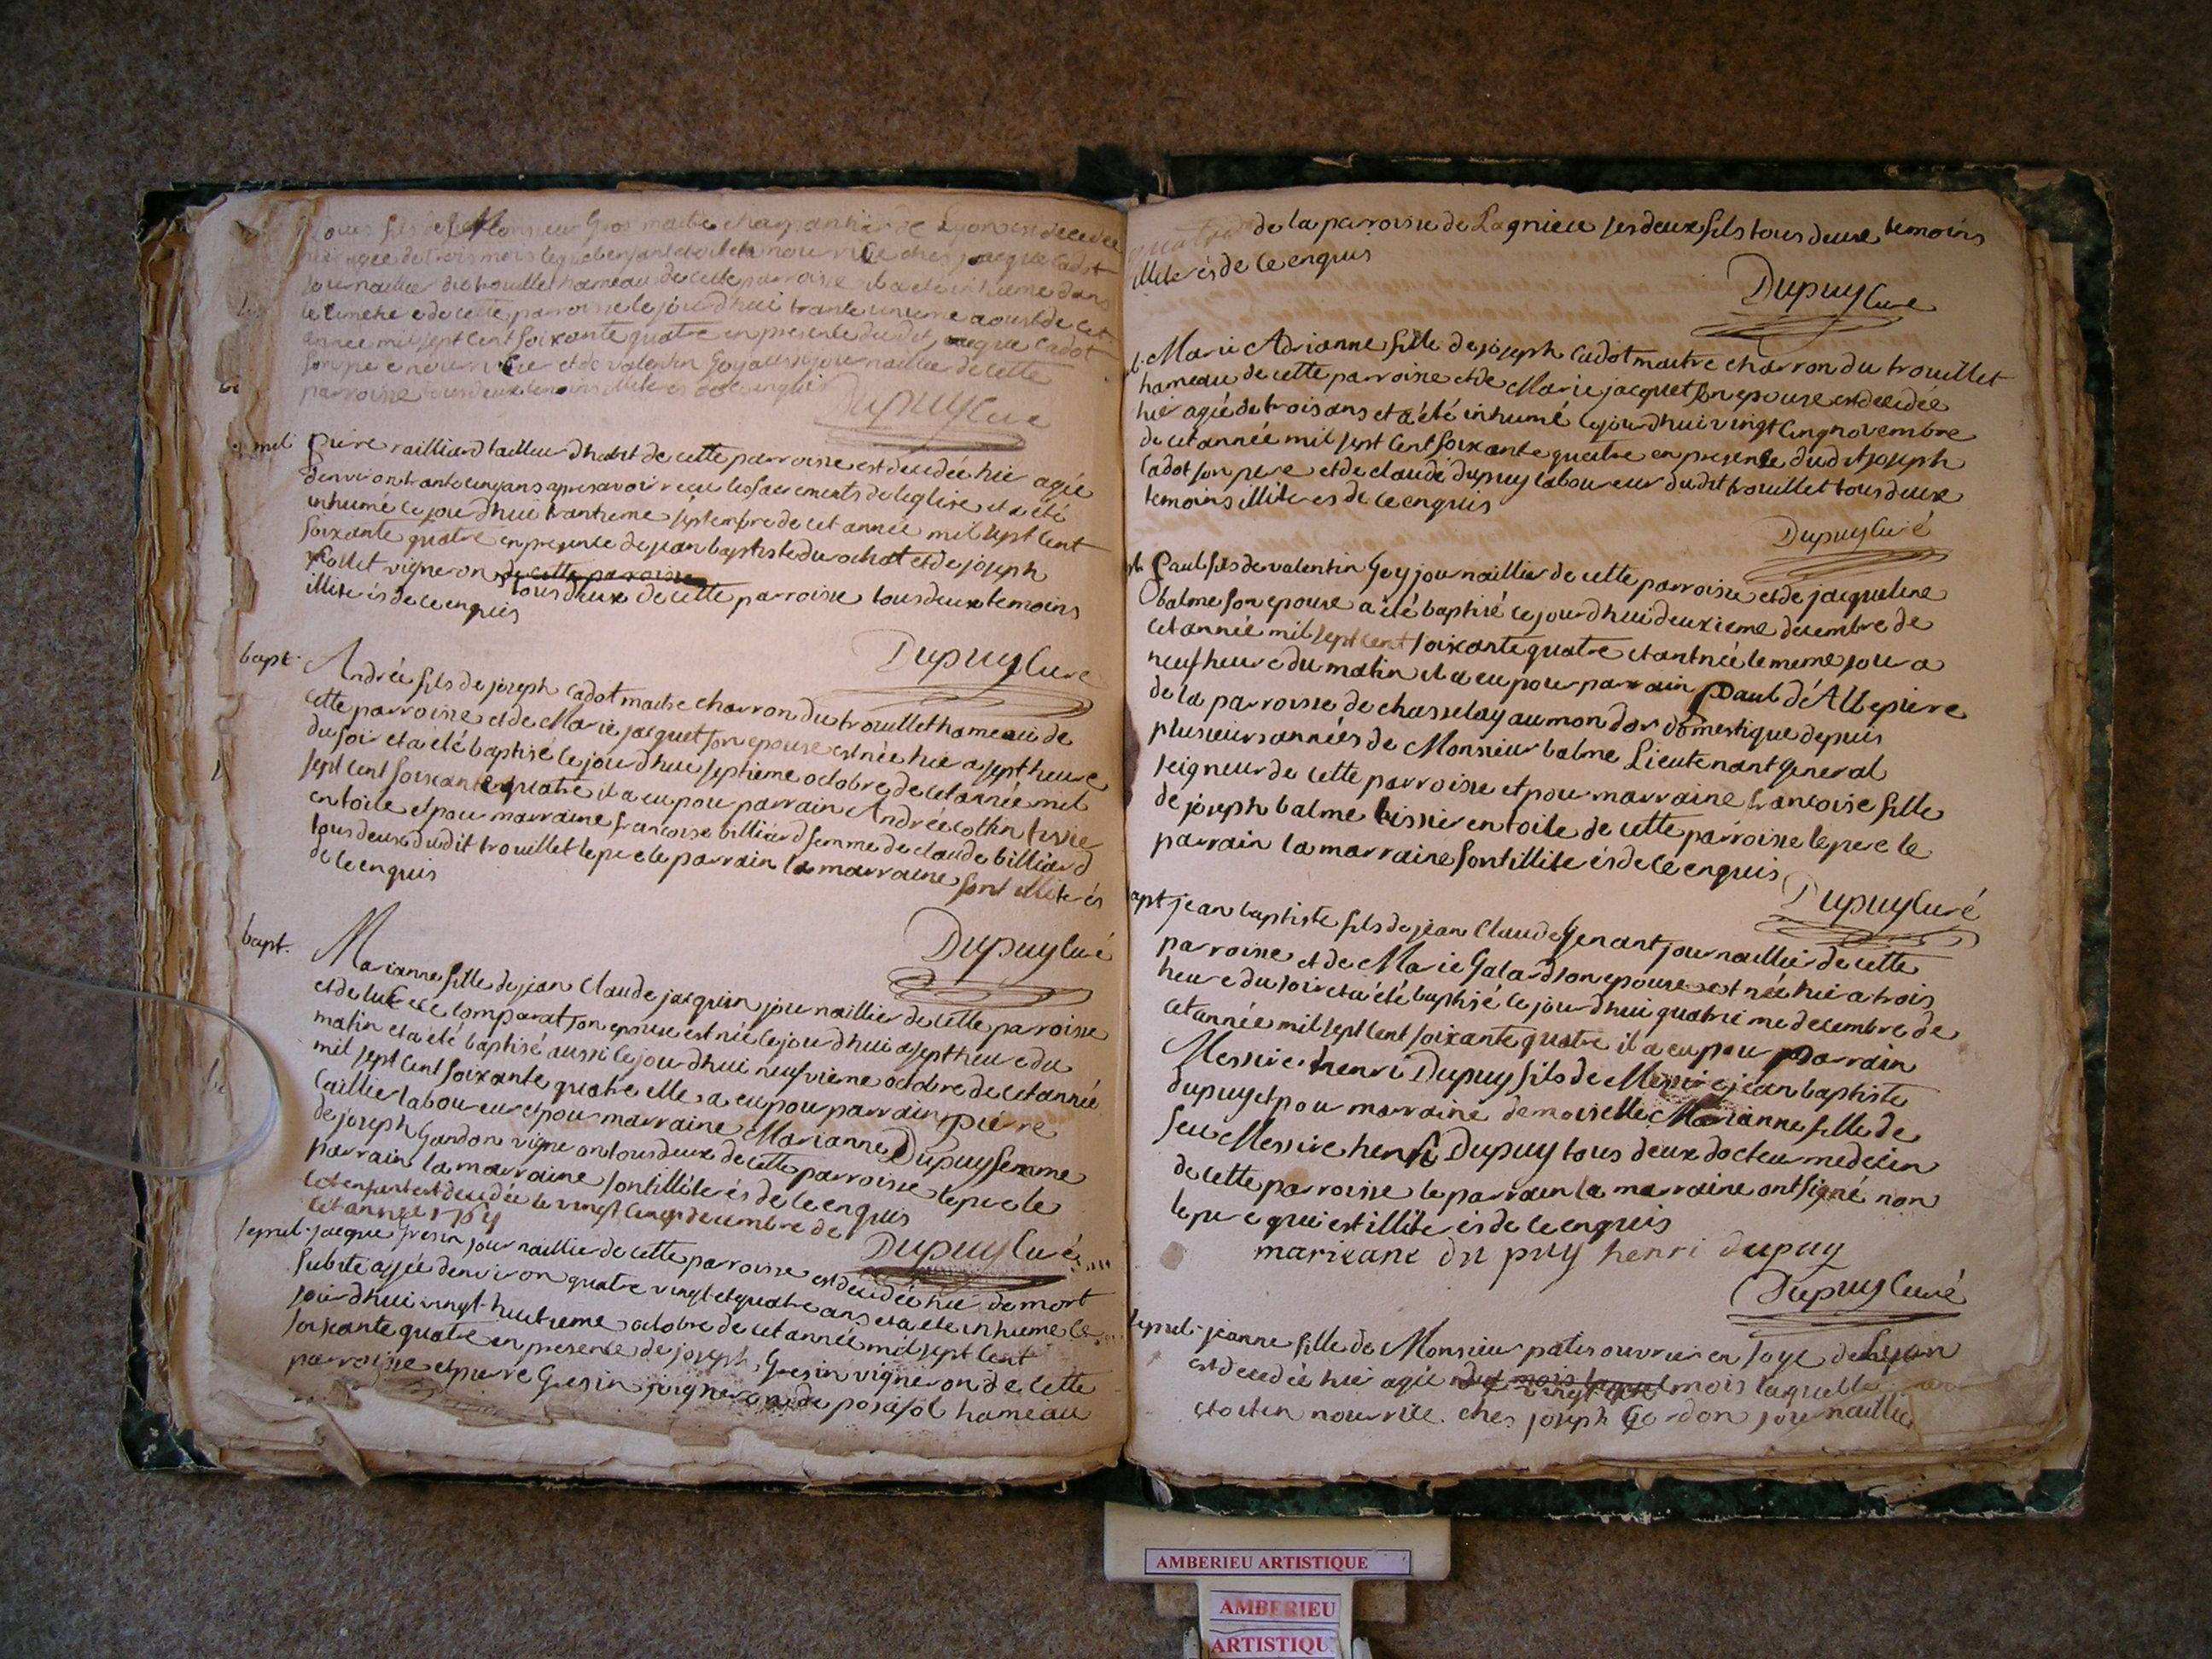 Louis fils de Monsieur Gros maitre charpantier de Lyon est decedée
hier agée de trois mois lequel enfant etoit en nourrice ches jacque Cadot
journalier du trouillet hameau de cette parroisse il a eté inhumé dans
le cimetiere de cette parroisse le jourdhui trante unieme aoust de cet
année mil sept cent soixante quatre en presence dudit jacque Cadot
son pere nourricier et de valentin Gey aussi journaillier de cette
parroisse tous deux temoins illiterés de ce enquis
Dupuy Curé
pierre railliard tailleur dhabit de cette parroisse est decedée hier agée
denviron trante cinq ans apres avoir recu les sacrements de leglise et a été
inhumé ce jourdhui trantieme septembre de cet année mil sept cent
soixante quatre en presence de jean baptiste durochat et de joseph
vigneron de cette parroisse
tous deux de cette parroisse tous deux temoins
illiterés de ce enquis
Dupuy Curé
bapt.
Andrée fils de joseph Cadot maitre charron du trouillet hameau de
cette parroisse et de Marie jacquet son epouse est née hier a sept heure
du soir et a eté baptisé ce jourdhui septieme octobre de cet année mil
sept cent soixante quatre il a eu pour parrain Andrée cottin tissier
en toile et pour marraine francoise billiard femme de claude billiard
tous deux dudit trouillet le pere le parrain la marraine sont illiterés
de ce enquis
Dupuy Curé
bapt.
Marianne fille de jean Claude jacquin journaillier de cette parroisse
et de lucrece comparat son epouse est née ce jourdhui a sept heure du
matin et a eté baptisé aussi ce jourdhui neufvieme octobre de cet année
mil sept cent soixante quatre elle a eu pour parrain pierre
Caillier laboureur et pour marraine Marianne Dupuy femme
de joseph Gardon vigneron tous deux de cette parroisse le pere le
parrain la marraine sont illiterés de ce enquis
cet enfant est decedée le vingt cinq decembre de
cet année 1764
Dupuy Curé
sepul. jacque Gresin journaillier de cette parroisse est decedée hier de mort
subite agée denviron quatre vingt et quatre ans et a eté inhumé ce
jourdhui vingt huitieme octobre de cet année mil sept cent
soixante quatre en presence de joseph Gresin vigneron de cette
parroisse et pierre Gresin vigneron de posafol hameau
de la parroisse de Lagnieu ses deux fils tous deux temoins
illiterés de ce enquis
Dupuy Cure
Marie Adrianne fille de joseph Cadot maitre charron du trouillet
hameau de cette parroisse et de Marie jacquet son epouse est decedée
hier agée de trois ans et a été inhumé ce jourdhui vingt cinq novembre
de cet année mil sept cent soixante quatre en presence dudit joseph
Cadot son pere et de claude dupuy laboureur dudit trouillet tous deux
temoins illiterés de ce enquis
Dupuy Curé
Paul fils de valentin Gey journaillier de cette parroisse et de jacqueline
balme son epouse a été baptisé ce jourdhui deuxieme decembre de
cet année mil sept cent soixante quatre etant née le meme jour a
neuf heure du matin il a eu pour parrain paul d'Allepierre
de la parroisse de chasselay au mon dor domestique depuis
plusieurs années de Monsieur balme Lieutenant general
seigneur de cette parroisse et pour marraine francoise fille
de joseph balme tissier en toile de cette parroisse le pere le
parrain la marraine sont illiterés de ce enquis
Dupuy Curé
bapt jean baptiste fils de jean Claude Genant journaillier de cette
parroisse et de Marie Galard son epouse est née hier a trois
heure du soir et a été baptisé ce jourdhui quatrieme decembre de
cet année mil sept cent soixante quatre il a eu pour parrain
Messire henri Dupuy fils de Messire jean baptiste
dupuy et pour marraine demoiselle Marianne fille de
feu Messire henri Dupuy tous deux docteur medecin
de cette parroisse le parrain la marraine ont signé non
le pere qui est illiterés de ce enquis
marieane du puy henri dupuy
Dupuy Curé
sepul. jeanne fille de Monsieur patis ouvrier en soye de Lyon
est decedée hier agée de mois laquelle
etoit en nourrice ches joseph Gardon journaillier
AMBERIEU ARTISTIQUE
AMBERIEU
ARTISTIQU